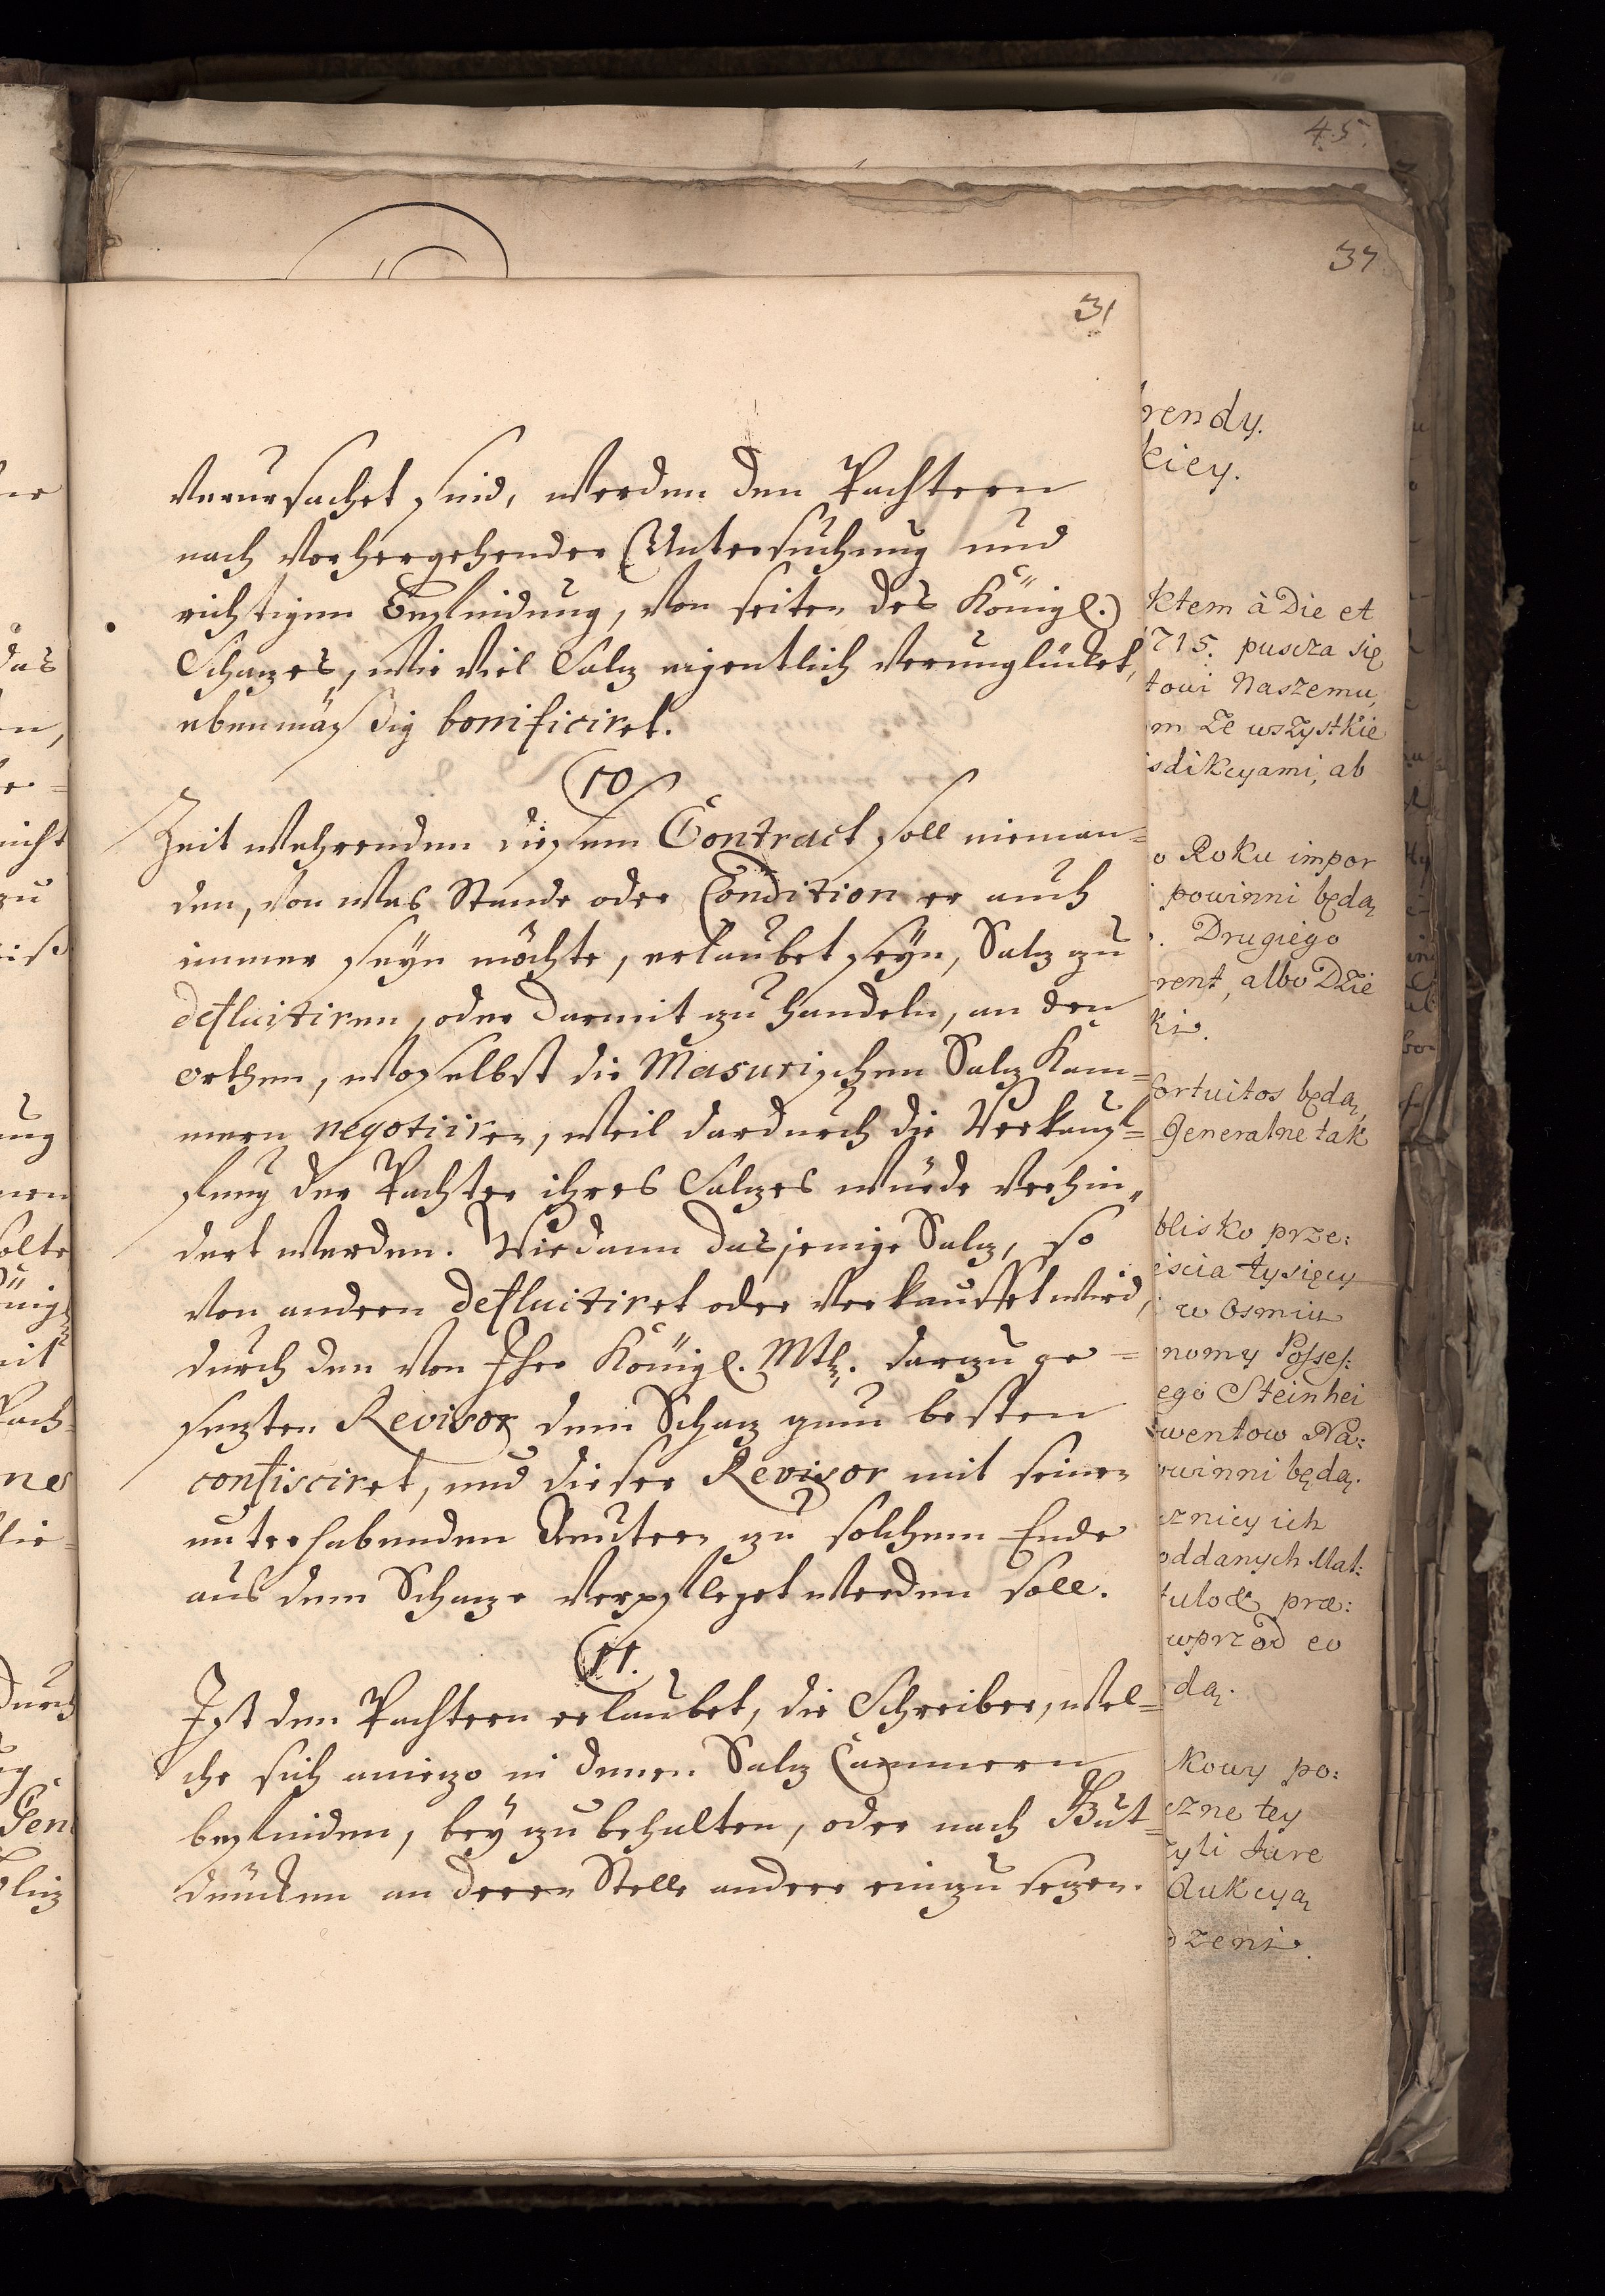 45.
37
31
verursachet sind, werden den Pachtern
nach vorhergehender Untersuchung und
richtigen Befindung, von seiten des Königl.
Schazes, wie viel Salz eigentlich verunglücket,
ebenmäßig bonificiret.
10
Zeit wehrenden diesem Contract soll nieman=
den, von was Stande oder Condition er auch
immer seyn möchte, erlaubet seyn, Salz zu
defluitiren, oder darmit zu handeln, an den
orthen, woselbst die Masurischen Salz Kam=
mern negotiiren, weil dardurch die Verkauf=
fung der Pachter ihres Salzes würde verhin„
dert werden. Wie dann dasjenige Salz, so
von andern defluitiret oder verkauffet wird,
durch den von Ihro Königl. Mth. darzu ge=
sezten Revisor dem Schaz zum besten
confisciret, und dieser Revisor mit seinen
unterhabenden Reutern zu solchem Ende
aus dem Schaze verpfleget werden soll.
11.
Ist den Pachtern erlaubet, die Schreiber, wel=
che sich aniezo in denen Salz Cammern
befinden, bey zu behalten, oder nach Gut=
düncken an deren Stelle andere einzu sezen.
rendy.
kiey.
ktem à Die et
715. puscza się
towi Naszemu,
m ze wszystkie
sdikcyami, ab
o Roku impor
powinni będą
. Drugiego
rent, albo Dzie
ki.
fortuitos będą,
Generalne tak
blisko prze:
escia tysięcy
w Osmiu
nomy Posses:
ego Steinhei
wentow Na:
owinni będą.
znicy ich
oddanych Mal:
tulo & præ:
wprzod eo
dą.
kowy po:
czne tey
zyli Jure
Aukcyą
dzeni.